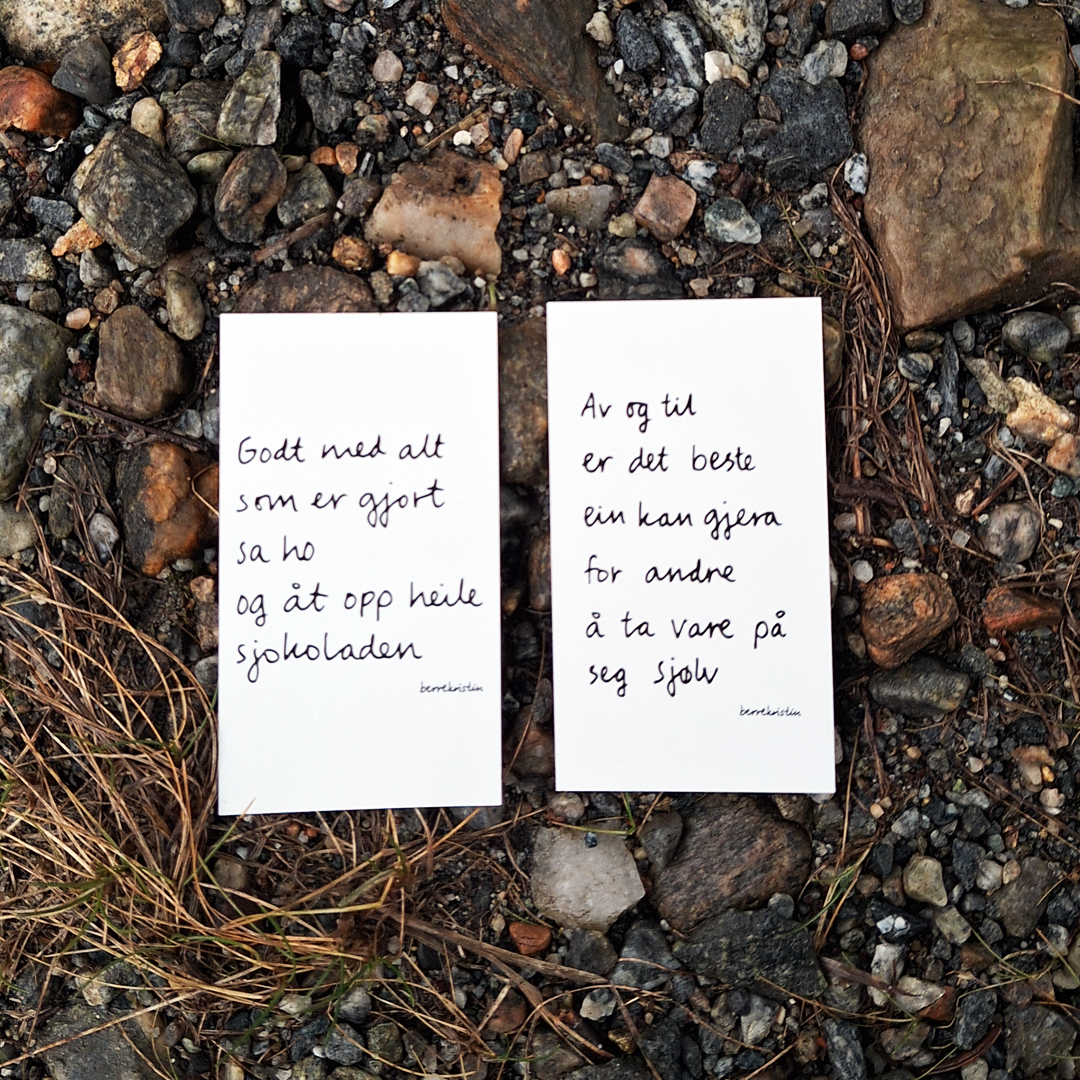 Godt med alt
som er gjort
sa ho
og åt opp heile
sjokoladen
berrekristin
Av og til
er det beste
ein kan gjera
for andre
å ta vare på
seg sjølv
berrekristin